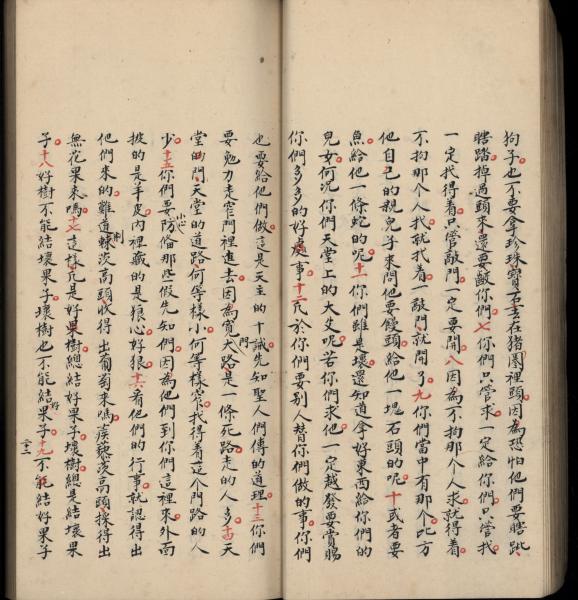 狗子也不要拿珍珠寶石丢在猪圈裡頭因為恐怕他們要瞎跐
瞎踏掉過頭來還要齩你們七你們只管求一定給你們只管找
一定找得着只管敲門一定要開八因為不拘那个人求就得着
不拘那个人找就找着一敲門就開了九你們當中有那个比方
他自己的親兒子來問他要饅頭給他一塊石頭的呢十或者要
魚給他一條蛇的呢十一你們雖是壞還知道拿好東西給你們的
兒女何况你們天堂上的大父呢若你們求他一定越發要賞賜
你們多多的好處事十二凢於你們要别人替你們做的事你們
也要給他們做這是天主的十誡先知聖人們傳的道理十三你們
要勉力走窄門裡進去因為寬門大路是一條死路走的人多十四天
堂的門天堂的道路何等樣小何等樣窄找得着這个門路的人
少十五你們要防偹那些假先知們因為他們到你們這裡來外面
披的是羊皮内裡藏的是狼心好狠十六看他們的行事就認得出
他們來的難道棘刺茨高頭收得出葡萄來嗎蒺藜茨高頭採得出
無花果來嗎十七這様凢是好果樹總結好果子壞樹總是結壞果
子十八好樹不能結壞果子壞樹也不能結好果子十九不能結好果子